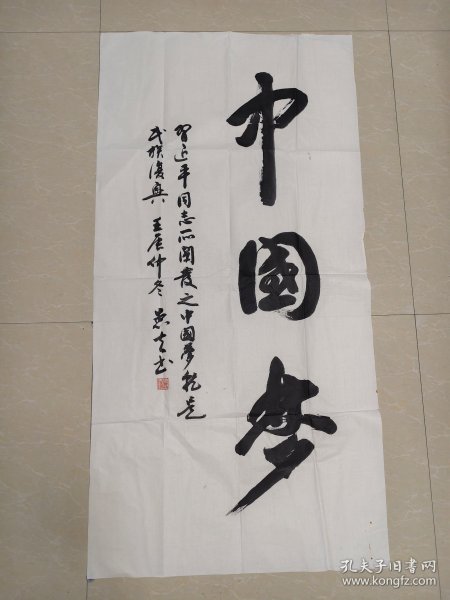 中國夢
習近平同志所闡發之中國夢就是
民族復興 壬辰仲冬 書
孔夫子旧书网
www.kongfz.com